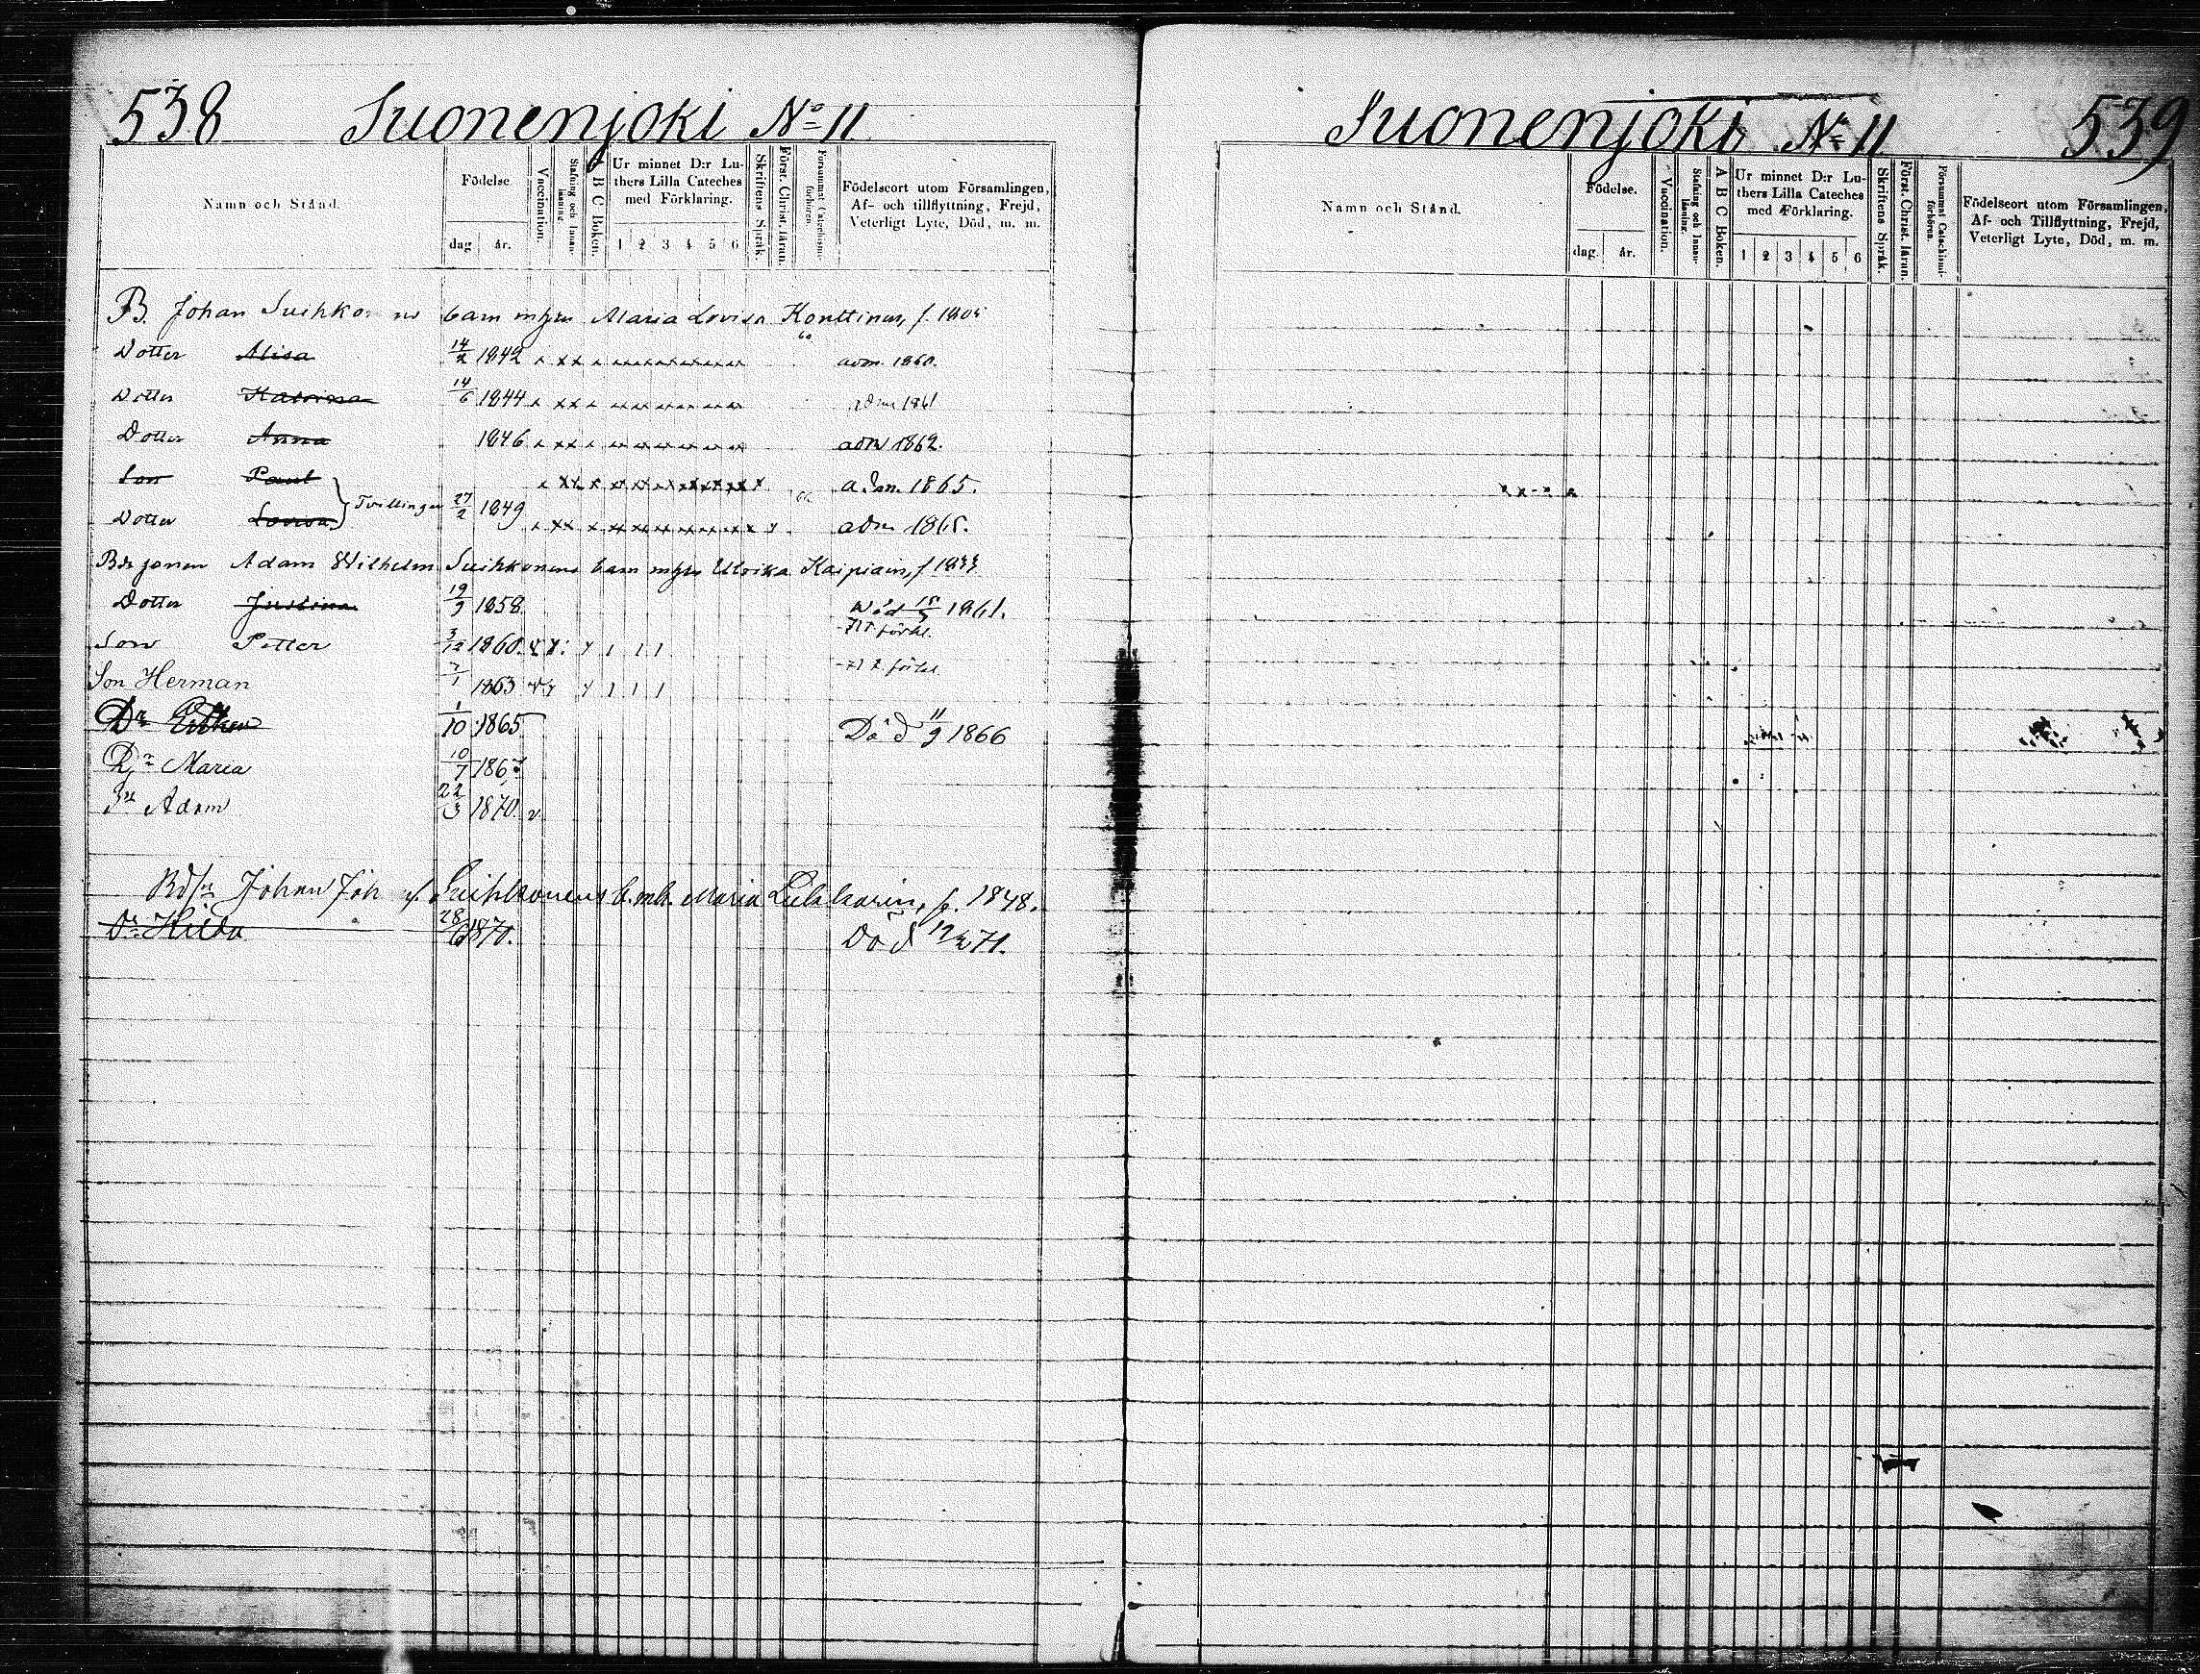 538 Suonenjoki No 11
Namn och Stånd.
Födelse
dag. år.
Vaccination.
Stafning och Innan-läsning.
A B C Boken.
Ur minnet D:r Lu-
thers Lilla Cateches
med Förklaring.
1 2 3 4 5 6
Skriftens Språk.
Först. Christ. läran.
Försummat Catechismi-förhören.
Födelseort utom Församlingen,
Af- och tillflyttning, Frejd,
Veterligt Lyte, Död, m. m.
B. Johan barn m/hu Maria Lovisa Konttinen, f.
Dotter Alisa 14/2 1842 adm. 1860.
Dotter Katrina 14/6 1844 adm 1861
Dotter Anna 1846 adm 1862.
Son Paul adm. 1865.
Tvillingar 27/2 1849
Dotter Lovisa adm 1865.
Adam Wilhelm Suihkonens barn Ulrika Kaipiain, f
Dotter Justina 19/9 1858 död 1861.
Son Petter 3/12 1860.
Son Herman 7/1 1863
Dr 1/10 1865 Död 11/9 1866
Dr Maria 10/7 1867
Sn Adam 22/3 1870. v
Johan Joh Suihkonens b. m.h. Maria f. 1848.
Dr Hilda 28/6 1870. Död 71.
Suonenjoki No 11 539
Namn och Stånd.
Födelse.
dag. år.
Vaccination.
Stafning och Innan-läsning.
A B C Boken.
Ur minnet D:r Lu-
thers Lilla Cateches
med Förklaring.
1 2 3 4 5 6
Skriftens Språk.
Först. Christ. läran.
Försummat Catechismi-förhören.
Födelseort utom Församlingen,
Af- och Tillflyttning, Frejd,
Veterligt Lyte, Död, m. m.